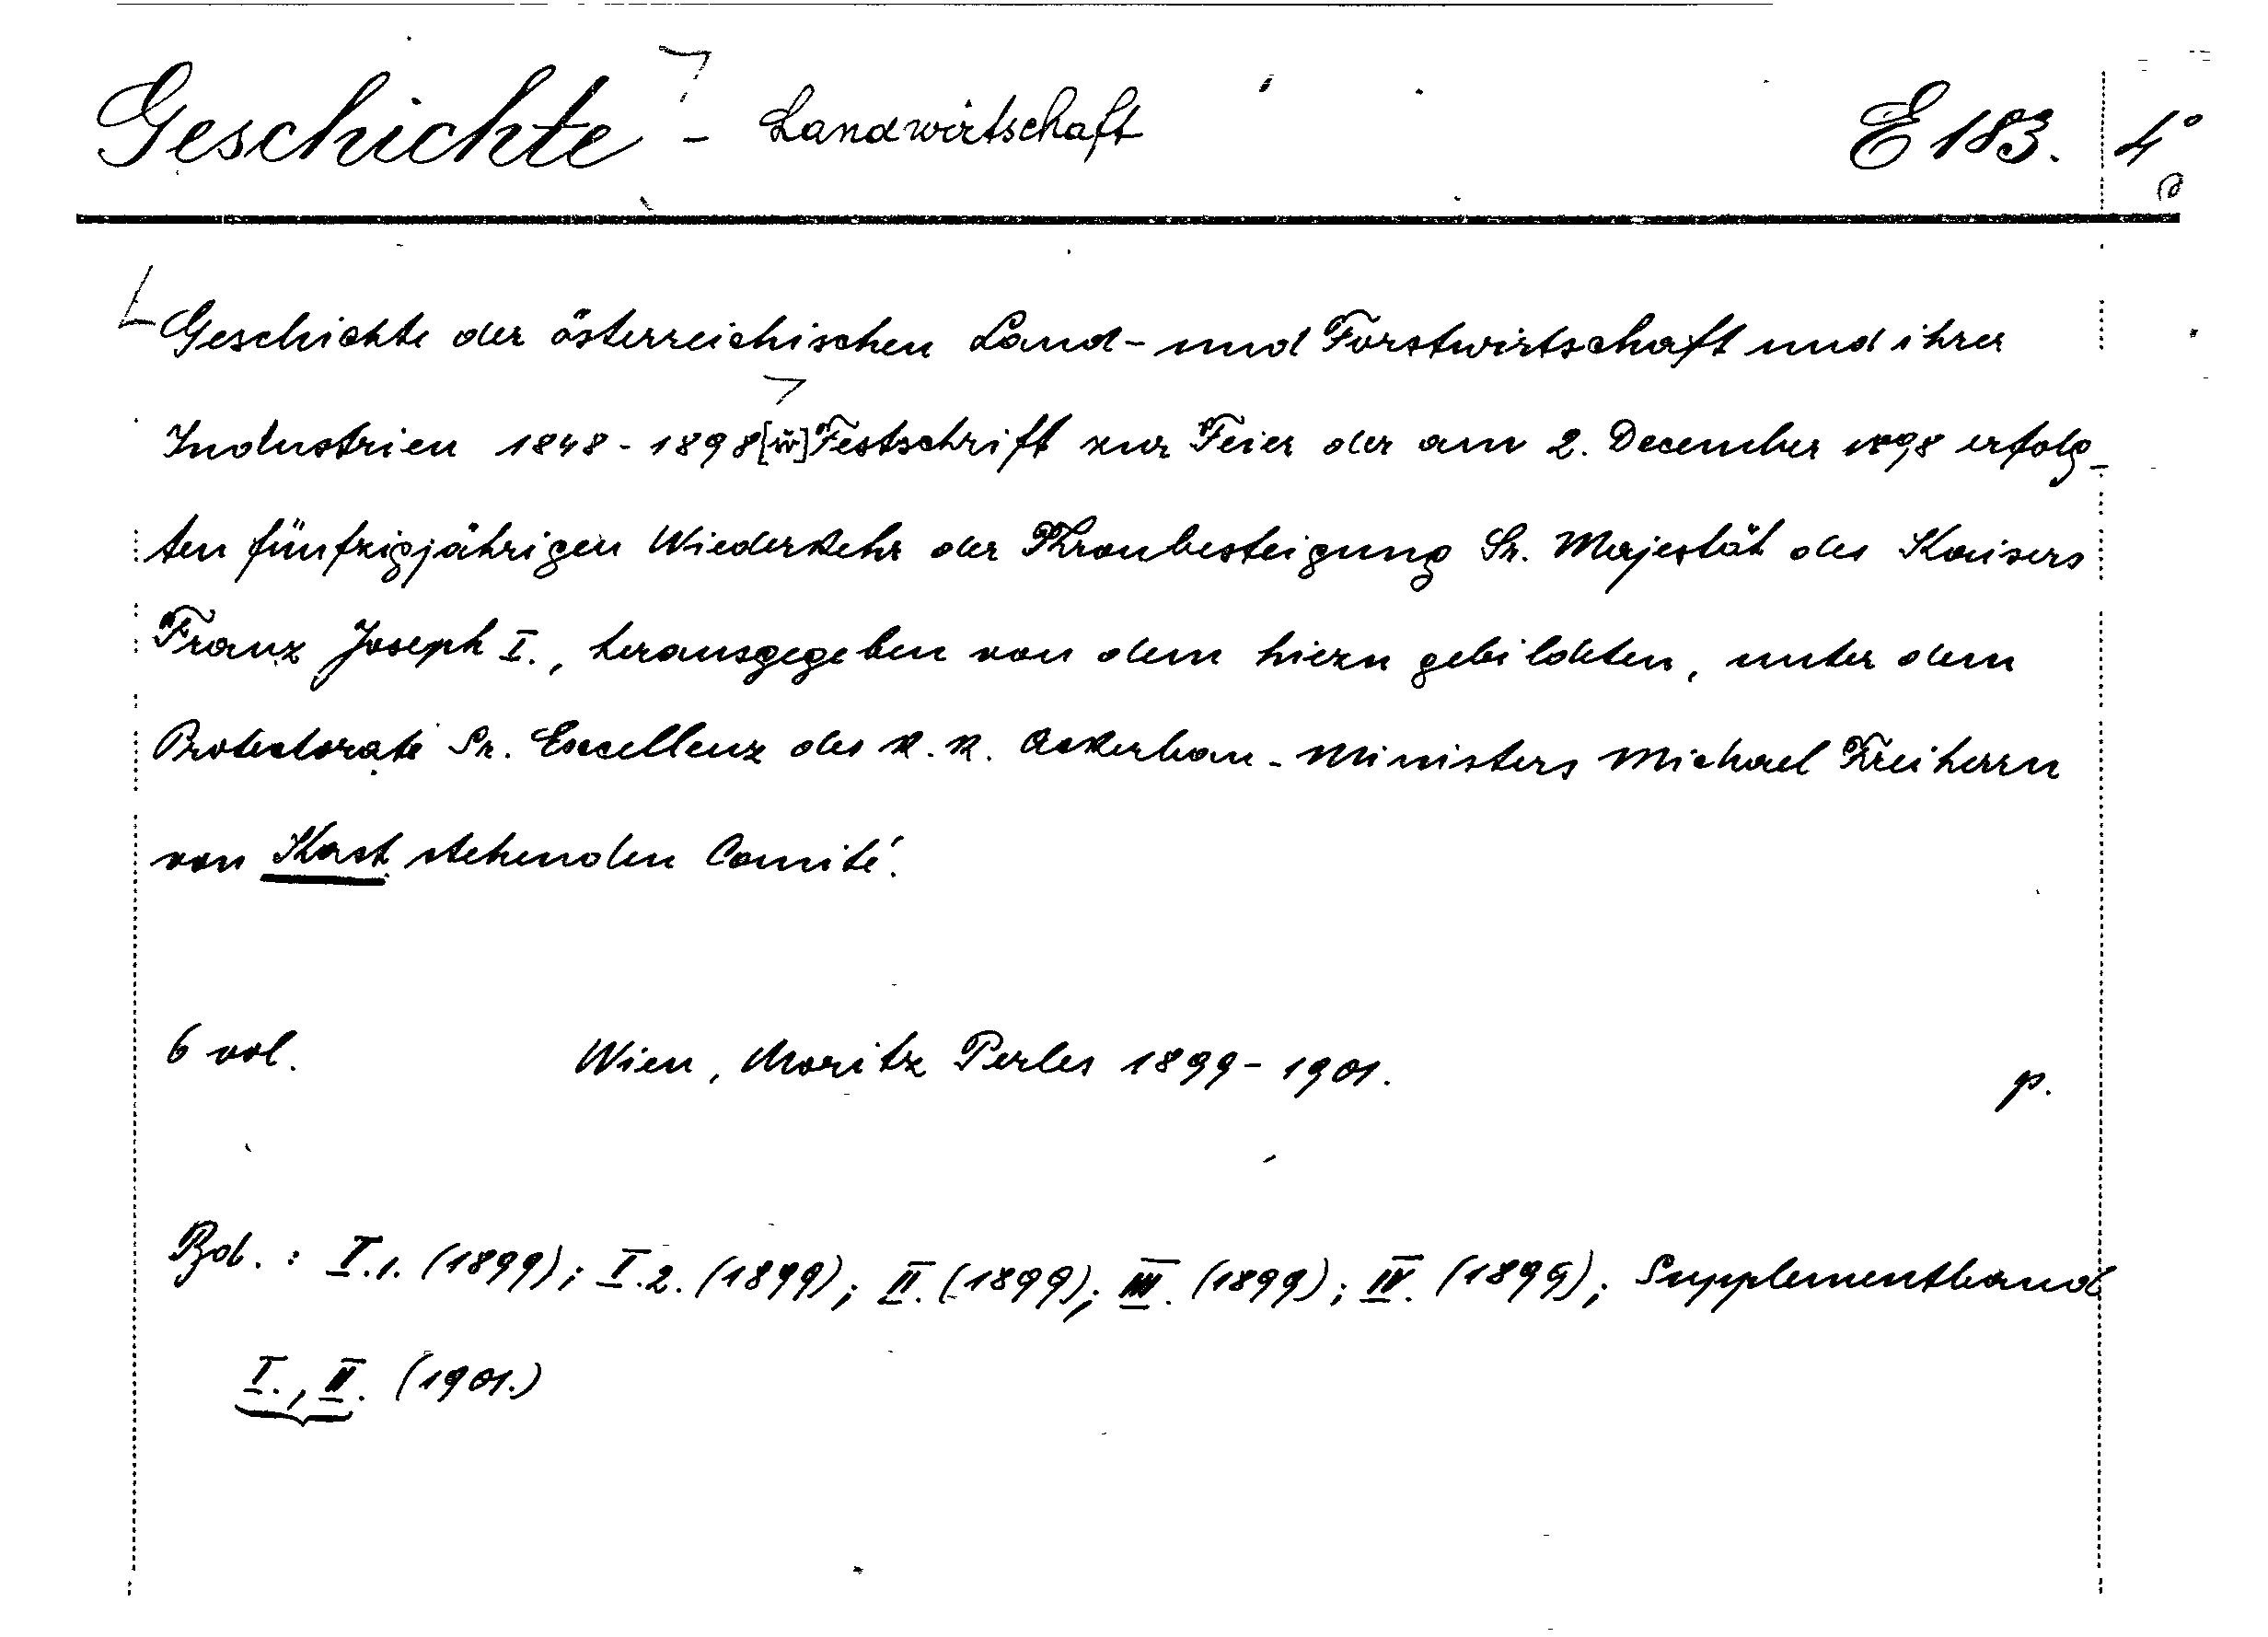 Geschichte - Landwirtschaft E 183. 4°
Geschichte der österreichischen Land- und Forstwirtschaft und ihrer
Industrien 1848 - 1898 Festschrift zur Feier der am 2. December 1898 erfolg-
ten fünfzigjährigen Wiederkehr der Thronbesteigung Sr. Majestät des Kaisers
Franz Joseph I., herausgegeben von dem hiezu gebildeten, unter dem
Protectorate Sr. Excellenz des k. k. Ackerbau-Ministers Michael Freiherrn
von Kast stehenden Comité.
6 vol. Wien, Moritz Perles 1899 - 1901. p.
Bd. : I.1. (1899); I.2. (1899); II. (1899); III. (1899); IV. (1899); Supplementband
I., II. (1901.)